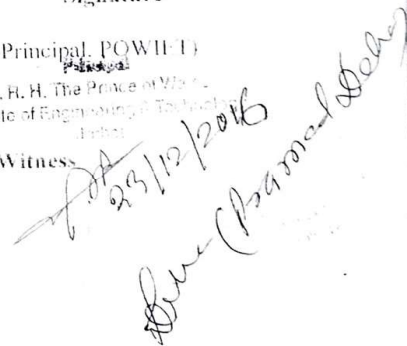 Signature
Principal, POWIET)
Principal
. R. H. The Prince of Wa
te of Engineering & Technolo
Jorhat
Witness
23/12/2016
(Pramod Deka)